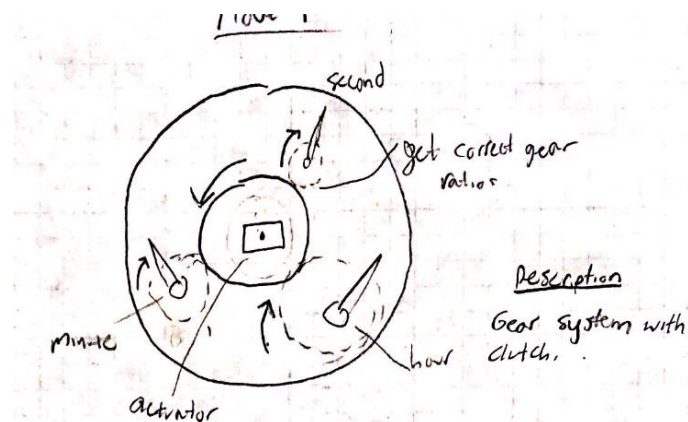 second
get correct gear
ratios.
Description
Gear system with
clutch.
minute
hour
actuator